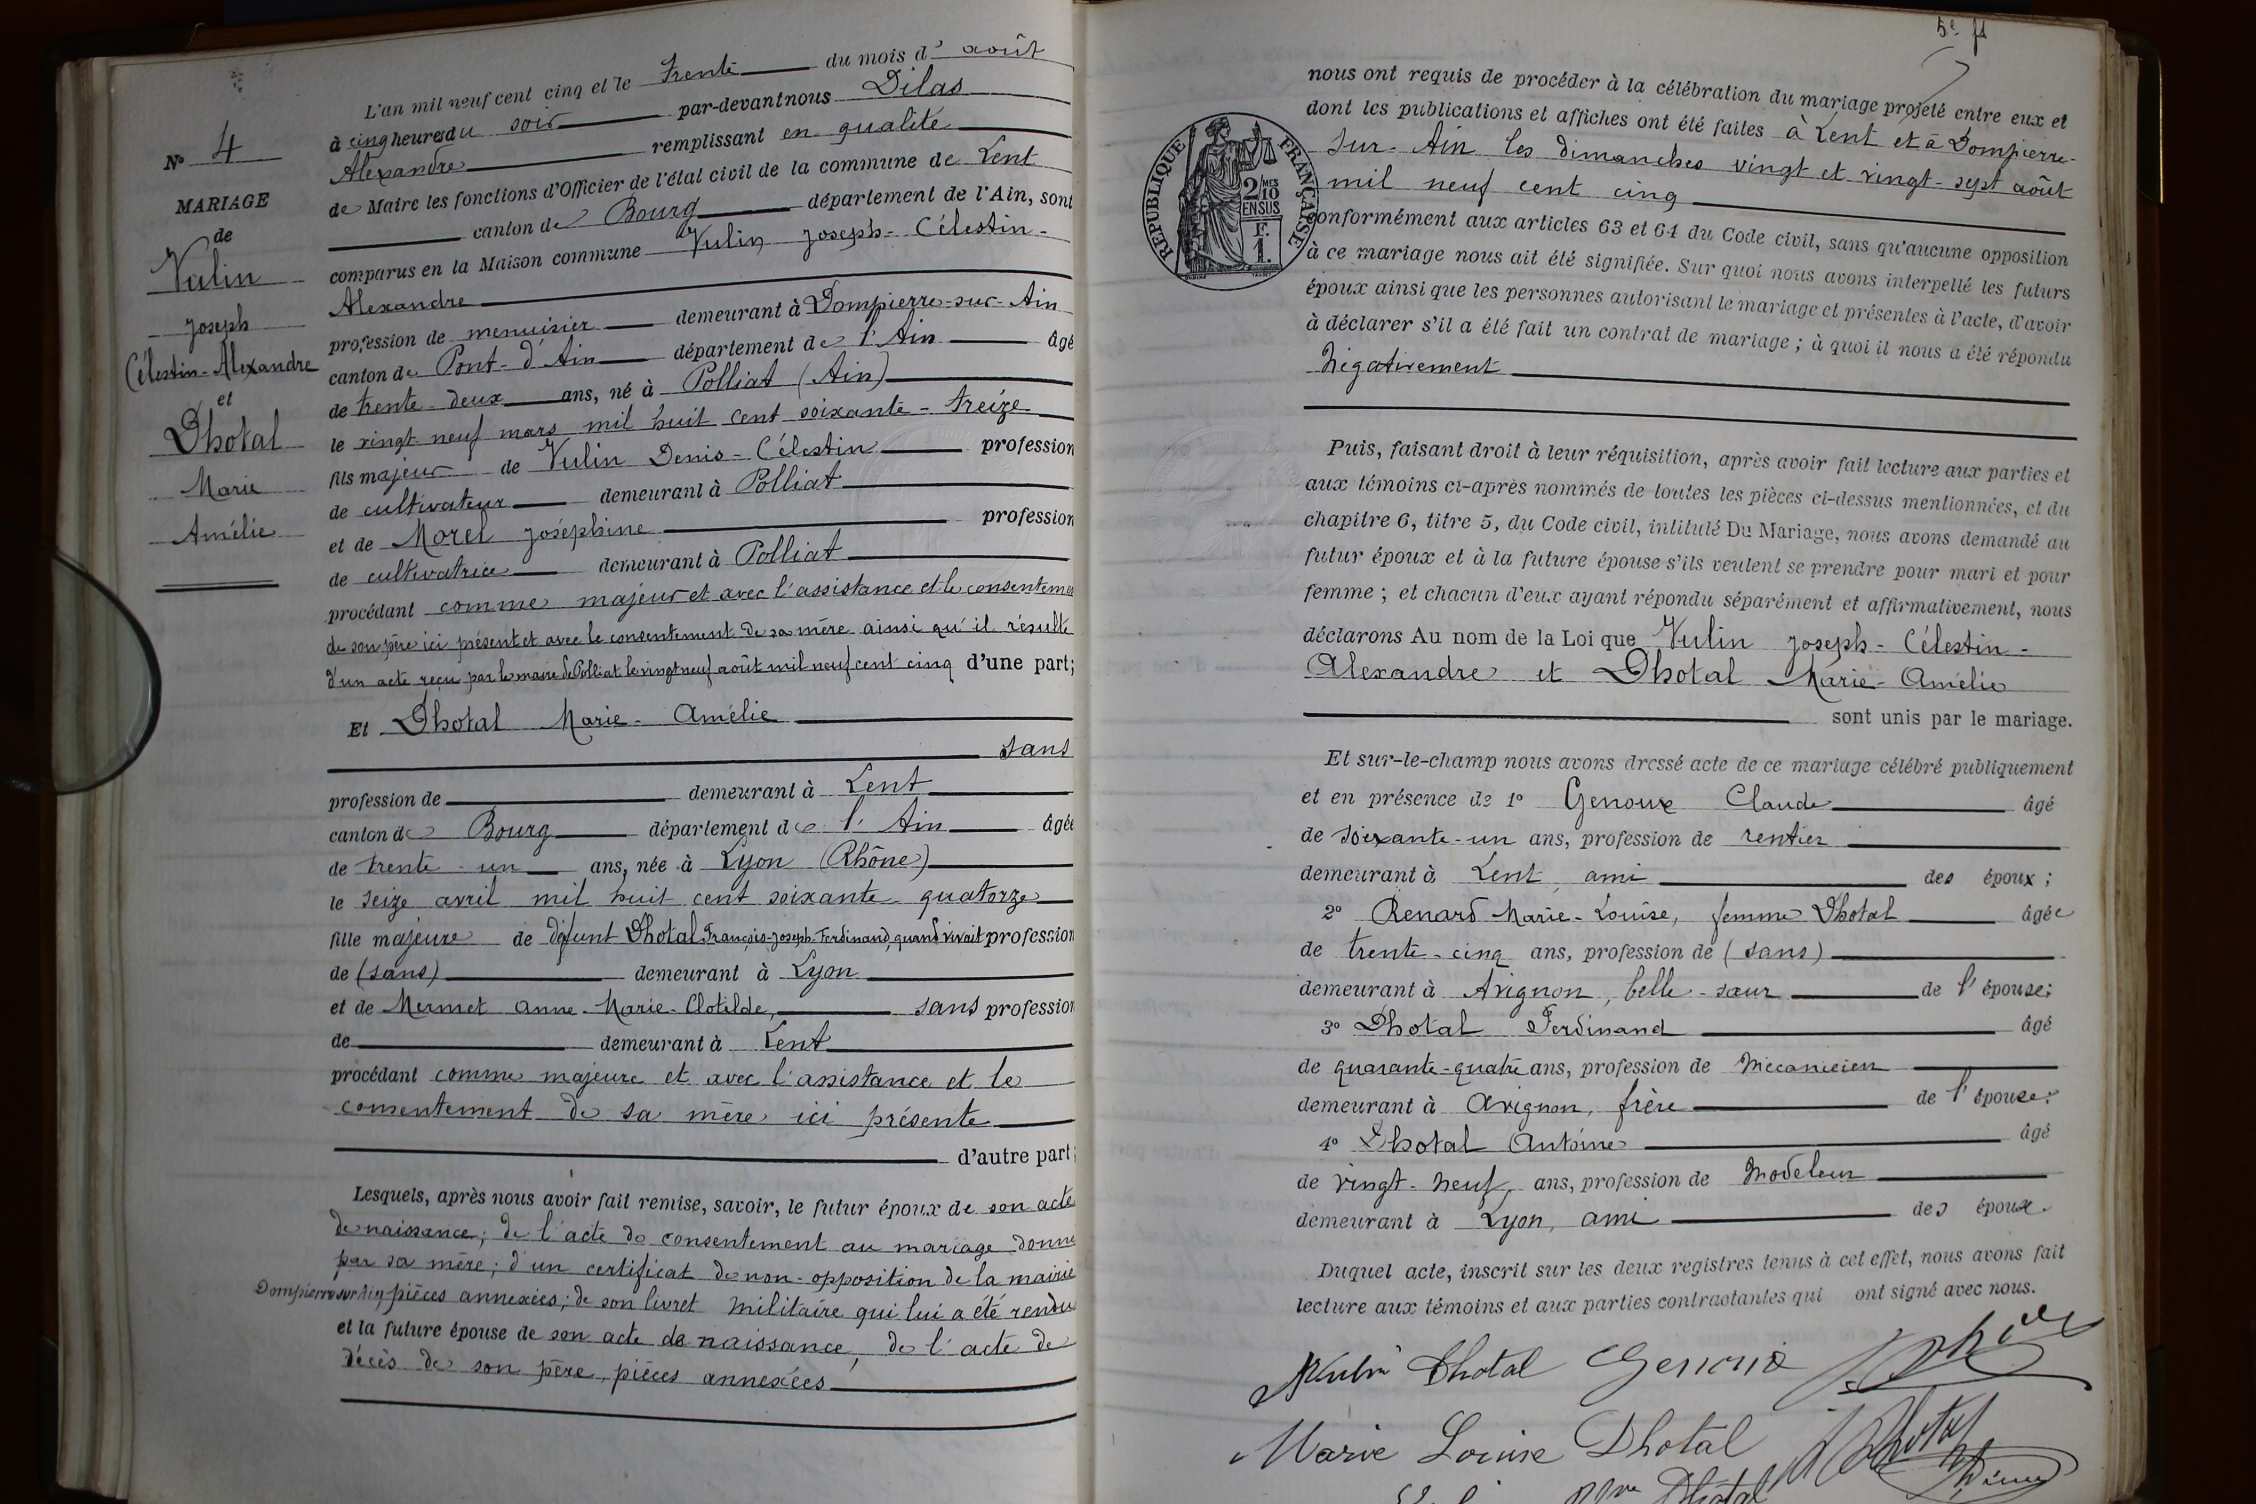 N° 4
MARIAGE
de
Vulin
Joseph
Célestin-Alexandre
et
Dhotal
Marie
Amélie
L'an mil neuf cent cinq et le trente du mois d' août
à cinq heures du soir par-devant nous Dilas
Alexandre remplissant en qualité
de Maire les fonctions d'Officier de l'état civil de la commune de Lent
canton de Bourg département de l'Ain, sont
comparus en la Maison commune Vulin Joseph-Célestin-
Alexandre
profession de menuisier demeurant à Dompierre-sur-Ain
canton de Pont-d'Ain département de l'Ain âgé
de trente-deux ans, né à Polliat (Ain)
le vingt neuf mars mil huit cent soixante-treize
fils majeur de Vulin Denis-Célestin profession
de cultivateur demeurant à Polliat
et de Morel Joséphine profession
de cultivatrice demeurant à Polliat
procédant comme majeur et avec l'assistance et le consenteme
de son père ici présent et avec le consentement de sa mère ainsi qu'il résulte
d'un acte reçu par le maire de Polliat le vingt neuf août mil neuf cent cinq d'une part;
Et Dhotal Marie-Amélie
sans
profession de demeurant à Lent
canton de Bourg département de l'Ain âgée
de trente-un ans, née à Lyon (Rhône)
le seize avril mil huit cent soixante quatorze
fille majeure de défunt Dhotal François-Joseph-Ferdinand, quand vivait profession
de (sans) demeurant à Lyon
et de Mermet Anne-Marie-Clotilde, sans profession
de demeurant à Lent
procédant comme majeure et avec l'assistance et le
consentement de sa mère ici présente
d'autre part;
Lesquels, après nous avoir fait remise, savoir, le futur époux de son acte
de naissance; de l'acte de consentement au mariage donné
par sa mère; d'un certificat de non-opposition de la mairie
Dompierre sur Ain, pièces annexées; de son livret militaire qui lui a été rendu
et la future épouse de son acte de naissance, de l'acte de
décès de son père, pièces annexées
5e ft
nous ont requis de procéder à la célébration du mariage projeté entre eux et
dont les publications et affiches ont été faites à Lent et à Dompierre-
sur-Ain les dimanches vingt et vingt-sept août
mil neuf cent cinq
conformément aux articles 63 et 64 du Code civil, sans qu'aucune opposition
à ce mariage nous ait été signifiée. Sur quoi nous avons interpellé les futurs
époux ainsi que les personnes autorisant le mariage et présentes à l'acte, d'avoir
à déclarer s'il a été fait un contrat de mariage; à quoi il nous a été répondu
Négativement
RÉPUBLIQUE FRANÇAISE
2/10 MES
EN SUS
F.
1.
Puis, faisant droit à leur réquisition, après avoir fait lecture aux parties et
aux témoins ci-après nommés de toutes les pièces ci-dessus mentionnées, et du
chapitre 6, titre 5, du Code civil, intitulé Du Mariage, nous avons demandé au
futur époux et à la future épouse s'ils veulent se prendre pour mari et pour
femme; et chacun d'eux ayant répondu séparément et affirmativement, nous
déclarons Au nom de la Loi que Vulin Joseph-Célestin-
Alexandre et Dhotal Marie-Amélie
sont unis par le mariage.
Et sur-le-champ nous avons dressé acte de ce mariage célébré publiquement
et en présence de 1° Genoux Claude âgé
de soixante-un ans, profession de rentier
demeurant à Lent, ami des époux;
2° Renard Marie-Louise, femme Dhotal âgée
de trente-cinq ans, profession de (sans)
demeurant à Avignon, belle-sœur de l'épouse;
3° Dhotal Ferdinand âgé
de quarante-quatre ans, profession de Mécanicien
demeurant à Avignon, frère de l'épouse;
4° Dhotal Antoine âgé
de vingt-neuf ans, profession de Modeleur
demeurant à Lyon, ami des époux.
Duquel acte, inscrit sur les deux registres tenus à cet effet, nous avons fait
lecture aux témoins et aux parties contractantes qui ont signé avec nous.
Vulin Dhotal Genoux
Marie Louise Dhotal Dhotal
Dhotal